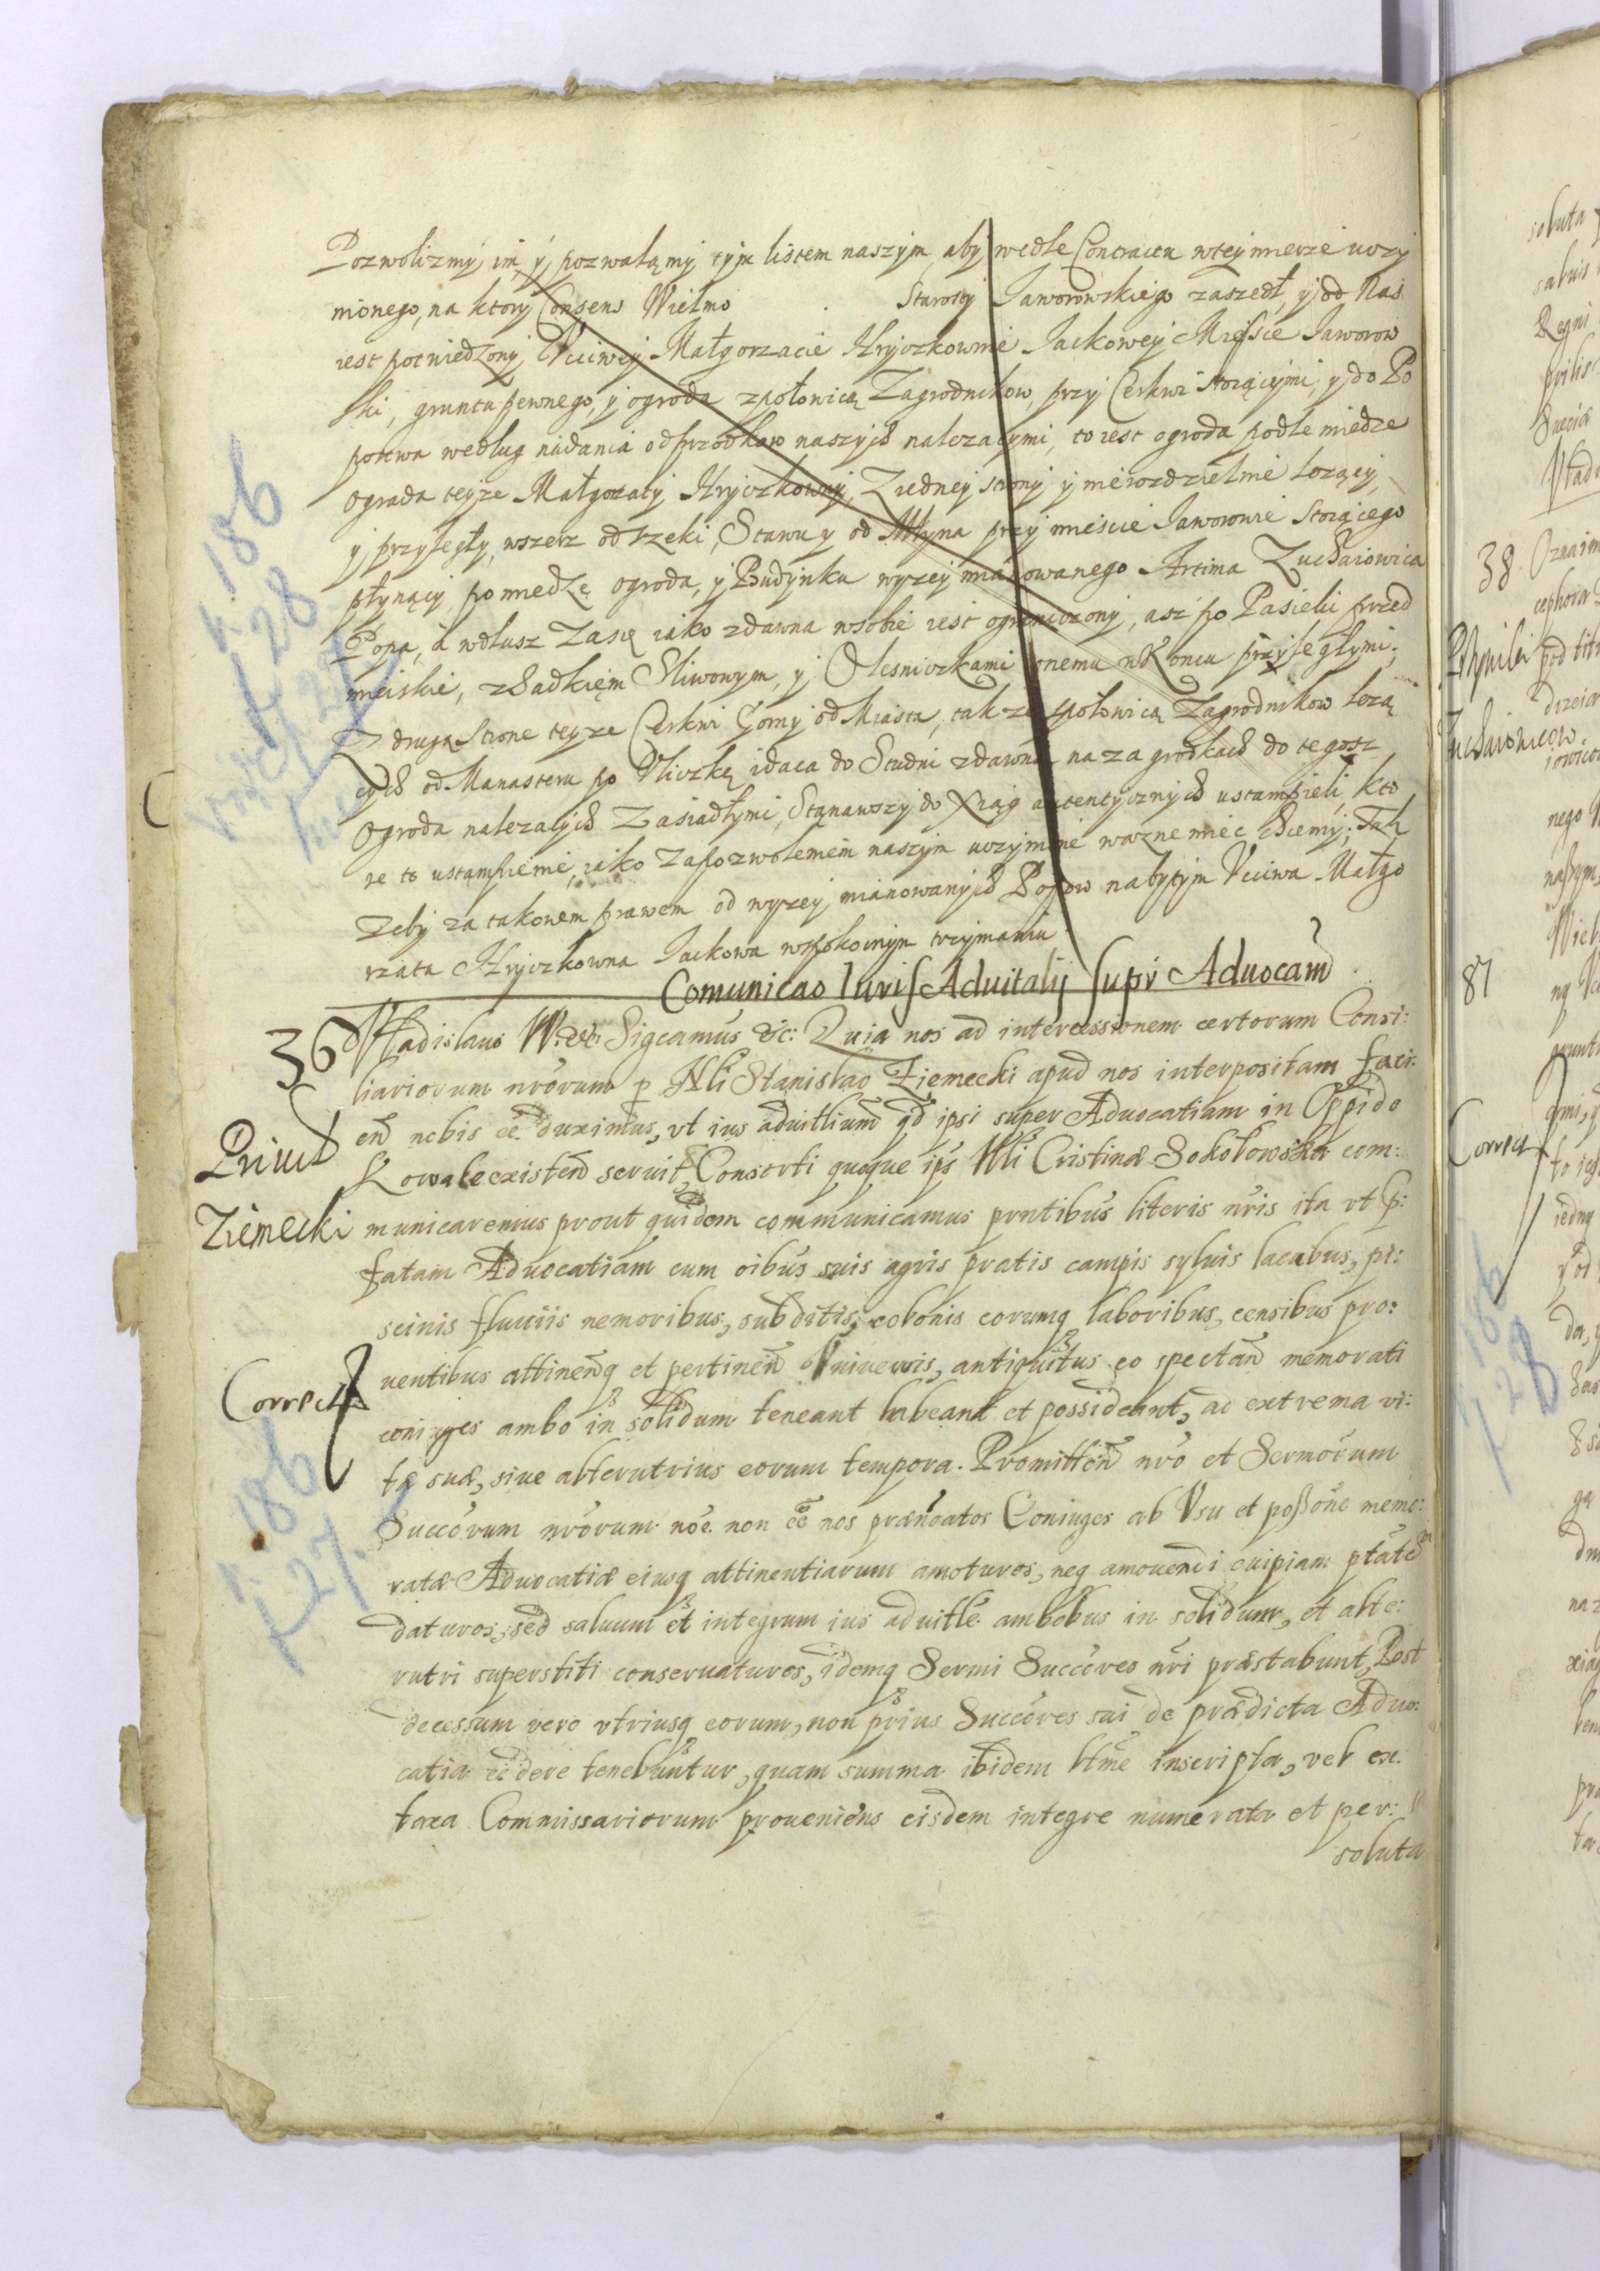 Pozwolizmy im y pozwalamy tym listem naszym aby wedle Contractu wtey mierze uczy
nionego, na ktory Consens Wielmo Starosty Jaworowskiego zaszedł, y od Nas
iest potwiedzony Vcciwey Małgorzacie Hryczkownie Jackowey Mieſce Jaworow
ski, gruntu pewnego, y ogroda zpołowicą Zagrodnikow, przy Cerkwi stoiącymi, y do Po
postwa według nadania od przodkow naszych nalezącymi, to iest ogroda podle miedze
ograda teyze Małgorzaty Hryczkowny, Ziedney strony y nierozdzielnie lezący,
y przyległy, wszerz od rzeki, Stawu y od Młyna przy mieście Jaworowie stoiącego
płynący, po miedzę ogroda, y Budynku wyzey mianowanego Artima Zuchaiowica
Popa, a wdłusz Zasię iako zdawna wsobie iest ograniczony, asz po Pasieki przed
mieiskie, zSadkięm Sliwowym, y Olesniczkami onemu wKoncu przyległymi;
Z drugą Strone teyze Cerkwi Gorny od Miasta, takze zpołowicą Zagrodnikow lezą
cych od Manasteru po Vliczkę idaca do Studni zdawna na zagrodkach do tegosz
Ogroda nalezących Zasiadłymi, Stanąwszy do Xiąg autentycznych ustąmpieli, kto
re to ustąmpienie, iako Zapozwoleniem naszym uczynione wazne miec chcemy; Tak
zeby za takowem prawem od wyzey mianowanych Popow nabytym Vcciwa Małgo
rzata Hryczkowna Jackowa wspokoinym trzymaniu
Comunicao Iuriſ Aduitalij ſupr Aduocam
36 Vladislaus IV. etc. Sigcamus etc: Quia nos ad intercessionem certorum Consi:
liariorum nrorum p Nli Stanislao Ziemecki apud nos interpositam faci:
Priuil end nobis ee duximus, vt ius aduitlium qd ipsi super Aduocatiam in Oppido
Kowale existen seruit, Consorti quoque ips Nli Cristinæ Sokołowska com:
Ziemecki municaremus prout quidem communicamus prntibus literis nris ita vt p:
fatam Aduocatiam cum oibus suis agris pratis campis syluis lacubus, pi:
scinis fluuiis nemoribus, subditis, colonis eorumq laboribus, censibus pro:
uentibus attinenq et pertinen vniuersis, antiquitus eo spectan memorati
Correcta coniuges ambo in solidum teneant habeant et possideant, ad extrema vi:
tæ suæ, siue alterutrius eorum tempora. Promitten nro et Sermorum
Succorum nrorum noe. non ee nos prænoatos Coniuges ab Vsu et possone memo:
ratæ Aduocatiæ eiusq attinentiarum amoturos, neq amouendi cuipiam ptatem
daturos, sed saluum et integrum ius aduitle ambobus in solidum, et alte:
rutri superstiti conseruaturos, idemq Sermi Succores nri præstabunt, Post
decessum vero vtriusq eorum, non prius Succores sui de prædicta Aduo:
catia cedere tenebuntur, quam summa ibidem ltme inscripta, vel ex
taxa Commissariorum proueniens eisdem integre numerata et per:
soluta
k. 186
f. 28
k. 186
f. 27.
soluta
38
87
Correcta
186
f. 28